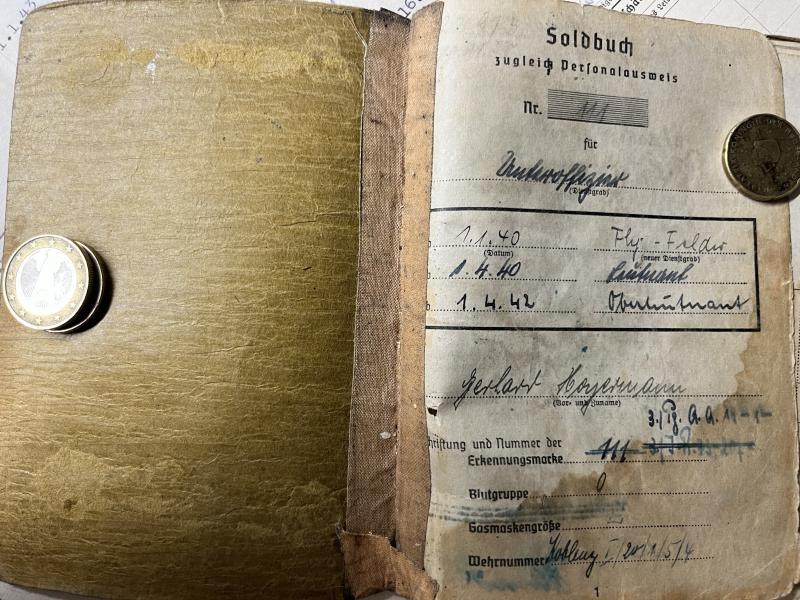 1.1.43
16.
Soldbuch
zugleich Personalausweis
Nr. 111
für
Unteroffizier
(Dienstgrad)
1.1.40
(Datum)
(neuer Dienstgrad)
1.4.40 Leutnant
1.4.42 Oberleutnant
Gerhard Hoyermann
(Vor- und Zuname)
riftung und Nummer der
Erkennungsmarke 111
Blutgruppe 0
Gasmaskengröße
Wehrnummer Koblenz I/20/1/5/4
1